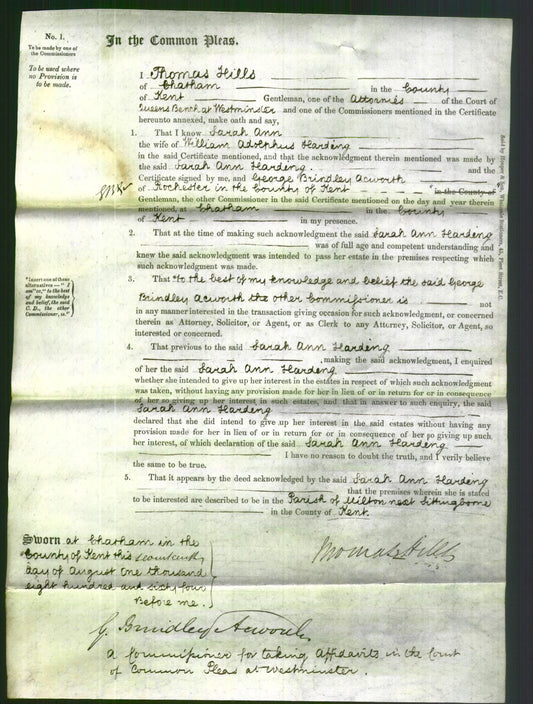 No. 1.
To be made by one of
the Commissioners
To be used where
no Provision is
to be made.
In the Common Pleas.
I Thomas Hills
of Chatham in the County
of Kent Gentleman, one of the Attornies of the Court of
Queens Bench at Westminster and one of the Commissioners mentioned in the Certificate
hereunto annexed, make oath and say,
1. That I know Sarah Ann
the wife of William Adolphus Harding
in the said Certificate mentioned, and that the acknowledgment therein mentioned was made by
the said Sarah Ann Harding. and the
Certificate signed by me, and George Brindley Acworth
of Rochester in the County of Kent in the County of
Gentleman, the other Commissioner in the said Certificate mentioned on the day and year therein
mentioned, at Chatham in the County
of Kent in my presence.
2. That at the time of making such acknowledgment the said Sarah Ann Harding
was of full age and competent understanding and
knew the said acknowledgment was intended to pass her estate in the premises respecting which
such acknowledgment was made.
"Insert one of these
alternatives — " I
am" or, " to the best
of my knowledge
and belief, the said
C. D., the other
Commissioner, is."
3. That "to the best of my knowledge and belief the said George
Brindley Acworth the other Commissioner is not
in any manner interested in the transaction giving occasion for such acknowledgment, or concerned
therein as Attorney, Solicitor, or Agent, or as Clerk to any Attorney, Solicitor, or Agent, so
interested or concerned.
4. That previous to the said Sarah Ann Harding
making the said acknowledgment, I enquired
of her the said Sarah Ann Harding
whether she intended to give up her interest in the estates in respect of which such acknowledgment
was taken, without having any provision made for her in lieu of or in return for or in consequence
of her so giving up her interest in such estates, and that in answer to such enquiry, the said
Sarah Ann Harding
declared that she did intend to give up her interest in the said estates without having any
provision made for her in lieu of or in return for or in consequence of her so giving up such
her interest, of which declaration of the said Sarah Ann Harding
I have no reason to doubt the truth, and I verily believe
the same to be true.
5. That it appears by the deed acknowledged by the said Sarah Ann Harding
that the premises wherein she is stated
to be interested are described to be in the Parish of Milton next Sittingbourne
in the County of Kent.
Sworn at Chatham in the
County of Kent this seventeenth
day of August One thousand
eight hundred and sixty four
Before me.
Thomas Hills
G. Brindley Acworth
A Commissioner for taking Affidavits in the Court
of Common Pleas at Westminster.